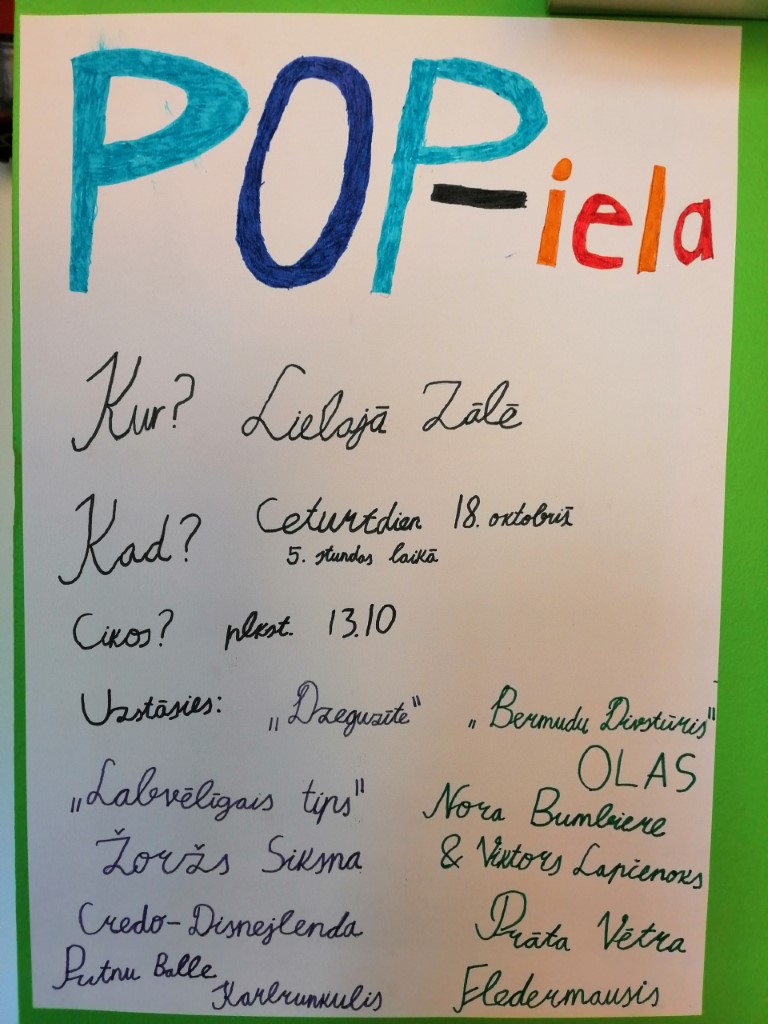 POP-iela
Kur? Lielajā Zālē
Kad? Ceturtdien 18. oktobrīs
5. stundas laikā
Cikos? plkst. 13.10
Uzstāsies: „Dzeguzīte" „Bermudu Divstūris"
„Labvēlīgais tips" OLAS
Žoržs Siksna Nora Bumbiere
& Viktors Lapčenoks
Credo-Disnejlenda Prāta Vētra
Putnu Balle
Karlrunkulis Fledermausis